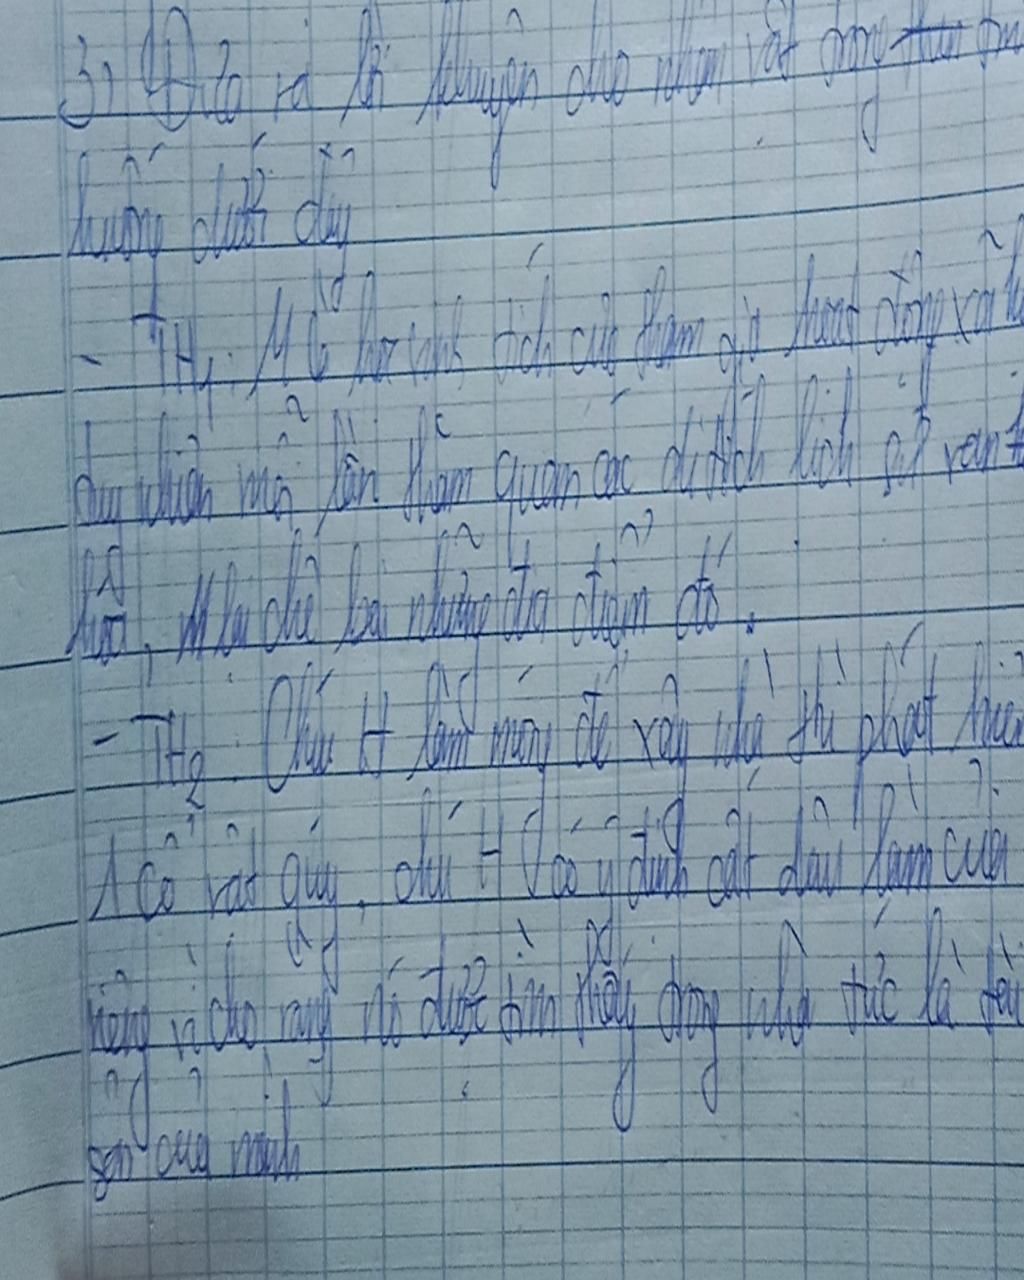 3) Đưa ra lời khuyên cho nhân vật trong
huống dưới đây
- TH1: M là học sinh tích cực tham gia hoạt động
tuy nhiên mỗi lần tham quan các di tích lịch sử văn
hoá, M lại chê bai những địa điểm đó.
- TH2: Chú H làm móng để xây nhà thì phát hiện
1 cổ vật quý, chú H có ý định cất dấu làm của
riêng vì cho rằng nó được tìm thấy trong nhà tức là tài
sản của mình